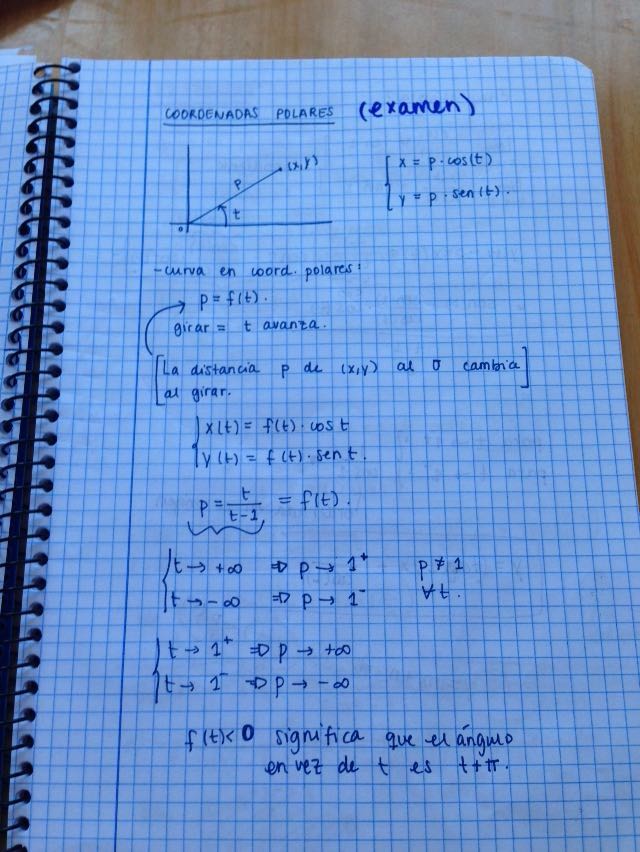 COORDENADAS POLARES (examen)
(x,y)
p
t
0
{ x = p·cos(t)
y = p·sen(t).
- curva en coord. polares:
p = f(t).
girar = t avanza.
[La distancia p de (x,y) al 0 cambia
al girar.]
{ x(t) = f(t)·cos t
y(t) = f(t)·sen t.
p = t/(t-1) = f(t).
{ t → +∞ ⇒ p → 1⁺ p ≠ 1
t → -∞ ⇒ p → 1⁻ ∀t.
{ t → 1⁺ ⇒ p → +∞
t → 1⁻ ⇒ p → -∞
f(t)<0 significa que el ángulo
en vez de t es t+π.